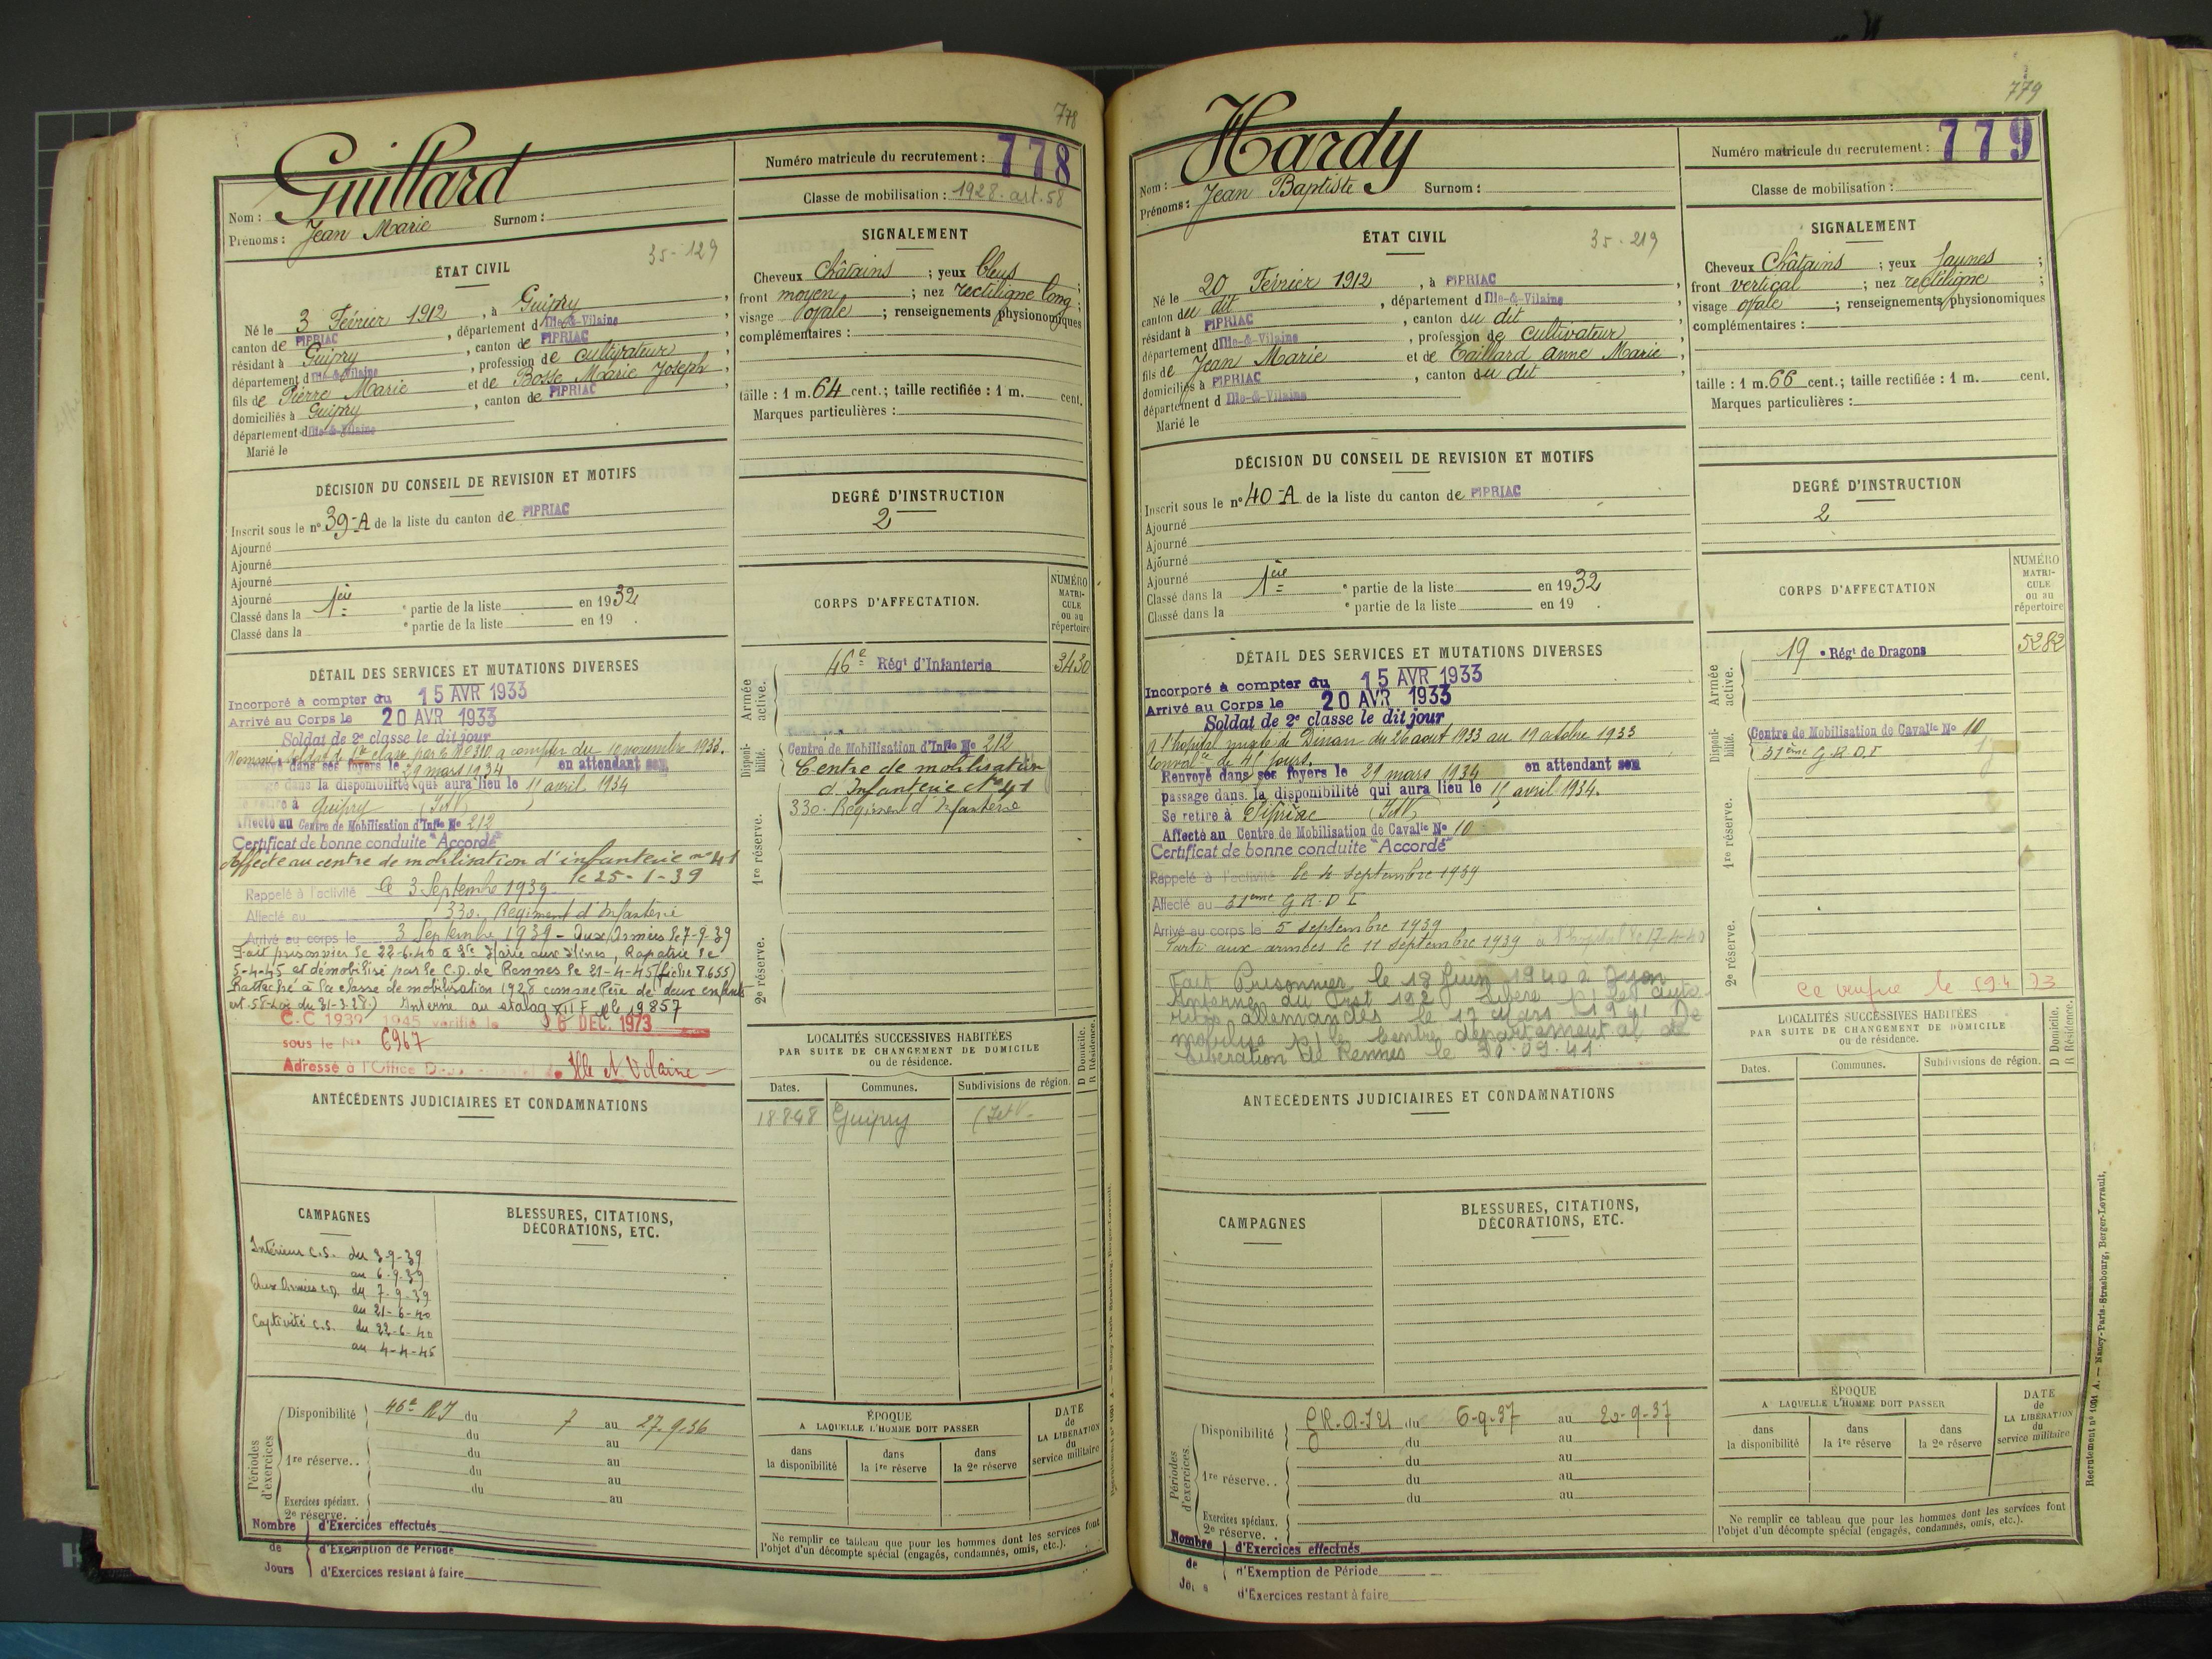 778
Guillard
Nom :
Prénoms : Jean Marie Surnom :
Numéro matricule du recrutement : 778
Classe de mobilisation : 1928. art. 58
ÉTAT CIVIL
35-129
Né le 3 Février 1912, à Guipry,
canton de PIPRIAC, département d Ille-&-Vilaine,
résidant à Guipry, canton de PIPRIAC,
département d Ille-&-Vilaine, profession de cultivateur
fils de Pierre Marie et de Bosse Marie Joseph,
domiciliés à Guipry, canton de PIPRIAC,
département d Ille-&-Vilaine
Marié le
SIGNALEMENT
Cheveux Châtains ; yeux bleus ;
front moyen ; nez rectiligne long ;
visage ovale ; renseignements physionomiques
complémentaires :
taille : 1 m. 64 cent.; taille rectifiée : 1 m. cent.
Marques particulières :
DÉCISION DU CONSEIL DE REVISION ET MOTIFS
Inscrit sous le n° 39-A de la liste du canton de PIPRIAC
Ajourné
Ajourné
Ajourné
Ajourné
Classé dans la 1ère e partie de la liste en 1932
Classé dans la e partie de la liste en 19 .
DEGRÉ D'INSTRUCTION
2
CORPS D'AFFECTATION.
NUMÉRO
MATRI-
CULE
ou au
répertoire
Armée active.
46e Régt d'Infanterie 3430
Disponi-bilité.
Centre de Mobilisation d'Infie No 212
Centre de mobilisation
d'Infanterie No 41
330. Régiment d'Infanterie
1re réserve.
2e réserve.
DÉTAIL DES SERVICES ET MUTATIONS DIVERSES
Incorporé à compter du 15 AVR 1933
Arrivé au Corps le 20 AVR 1933
Soldat de 2e classe le dit jour
Nommé soldat de 1re classe par o No 310 a compter du 10 novembre 1933.
dans ses foyers le 29 mars 1934 en attendant son
dans la disponibilité qui aura lieu le 11 avril 1934
Se retire à Guipry (I et V)
Affecté au Centre de Mobilisation d'Infie No 212
Certificat de bonne conduite "Accordé"
Affecté au centre de mobilisation d'infanterie no 41
le 25-1-39
Rappelé à l'activité le 3 Septembre 1939
Affecté au 330. Régiment d'Infanterie
Arrivé au corps le 3 Septembre 1939 - Aux Armées le 7-9-39
Fait prisonnier le 22-6-40 à Ste Marie aux Mines, Rapatrié le
5-4-45 et démobilisé par le C.D. de Rennes le 21-4-45 (fiche 8.655)
Rattaché à la classe de mobilisation 1928 comme Père de deux enfants
art. 58-Loi du 31-3-28.) Interné au stalag XII F No 19857
C.C 1939 1945 vérifié le 26 DEC. 1973
sous le No 6967
Adressé à l'Office Ille et Vilaine
ANTÉCÉDENTS JUDICIAIRES ET CONDAMNATIONS
LOCALITÉS SUCCESSIVES HABITÉES
PAR SUITE DE CHANGEMENT DE DOMICILE
ou de résidence.
D Domicile.
R Résidence.
Dates. Communes. Subdivisions de région.
18-8-48 Guipry (I et V.
CAMPAGNES
Intérieur C.S. du 3-9-39
au 6-9-39
Aux Armées C.D. du 7-9-39
au 21-6-40
Captivité C.S. du 22-6-40
au 4-4-45
BLESSURES, CITATIONS,
DÉCORATIONS, ETC.
Périodes d'exercices
Disponibilité 46e RI du 7 au 27-9-36
du au
1re réserve.. du au
du au
du au
Exercices spéciaux.
2e réserve.
Nombre d'Exercices effectués
de d'Exemption de Période
Jours d'Exercices restant à faire
ÉPOQUE
A LAQUELLE L'HOMME DOIT PASSER
dans la disponibilité
dans la 1re réserve
dans la 2e réserve
DATE
de
LA LIBÉRATION
du
service militaire
Ne remplir ce tableau que pour les hommes dont les services font
l'objet d'un décompte spécial (engagés, condamnés, omis, etc.).
779
Hardy
Nom :
Prénoms : Jean Baptiste Surnom :
Numéro matricule du recrutement : 779
Classe de mobilisation :
ÉTAT CIVIL
35-219
Né le 20 Février 1912, à PIPRIAC,
canton du dit, département d Ille-&-Vilaine
résidant à PIPRIAC, canton du dit,
département d Ille-&-Vilaine, profession de Cultivateur,
fils de Jean Marie et de Taillard Anne Marie,
domiciliés à PIPRIAC, canton du dit,
département d Ille-&-Vilaine
Marié le
SIGNALEMENT
Cheveux Châtains ; yeux Jaunes ;
front vertical ; nez rectiligne ;
visage ovale ; renseignements physionomiques
complémentaires :
taille : 1 m. 66 cent.; taille rectifiée : 1 m. cent.
Marques particulières :
DÉCISION DU CONSEIL DE REVISION ET MOTIFS
Inscrit sous le n° 40-A de la liste du canton de PIPRIAC
Ajourné
Ajourné
Ajourné
Ajourné
Classé dans la 1ère e partie de la liste en 1932
Classé dans la e partie de la liste en 19 .
DEGRÉ D'INSTRUCTION
2
CORPS D'AFFECTATION
NUMÉRO
MATRI-
CULE
ou au
répertoire
Armée active.
19 e Régt de Dragons 5282
Disponi-bilité.
Centre de Mobilisation de Cavalie No 10
31ème G.R.D.I
1re réserve.
2e réserve.
DÉTAIL DES SERVICES ET MUTATIONS DIVERSES
Incorporé à compter du 15 AVR 1933
Arrivé au Corps le 20 AVR 1933
Soldat de 2e classe le dit jour
A l'hôpital mixte de Dinan du 26 aout 1933 au 19 octobre 1933
Convalce de 41 jours.
Renvoyé dans ses foyers le 29 mars 1934 en attendant son
passage dans la disponibilité qui aura lieu le 15 avril 1934.
Se retire à Pipriac (I et V)
Affecté au Centre de Mobilisation de Cavalie No 10
Certificat de bonne conduite "Accordé"
Rappelé à l'activité le 4 septembre 1939
Affecté au 31ème G.R.D.I
Arrivé au corps le 5 septembre 1939
Parti aux armées le 11 septembre 1939
Fait Prisonnier le 19 Juin 1940 à Dijon
Interné du Frst 192 Libéré p/ les auto-
rités allemandes le 17 Mars 1941 Dé
mobilisé p/ le Centre départemental de
Libération de Rennes le 30.03.41
ce vérifié le
ANTÉCÉDENTS JUDICIAIRES ET CONDAMNATIONS
LOCALITÉS SUCCESSIVES HABITÉES
PAR SUITE DE CHANGEMENT DE DOMICILE
ou de résidence.
D Domicile.
R Résidence.
Dates. Communes. Subdivisions de région.
CAMPAGNES
BLESSURES, CITATIONS,
DÉCORATIONS, ETC.
Périodes d'exercices.
Disponibilité du 6-9-37 au 20-9-37
du au
1re réserve.. du au
du au
du au
Exercices spéciaux.
2e réserve. .
Nombre d'Exercices effectués
de d'Exemption de Période
d'Exercices restant à faire
ÉPOQUE
A LAQUELLE L'HOMME DOIT PASSER
dans la disponibilité
dans la 1re réserve
dans la 2e réserve
DATE
de
LA LIBÉRATION
du
service militaire
Ne remplir ce tableau que pour les hommes dont les services font
l'objet d'un décompte spécial (engagés, condamnés, omis, etc.).
Recrutement n° 1001 A. — Nancy-Paris-Strasbourg, Berger-Levrault,